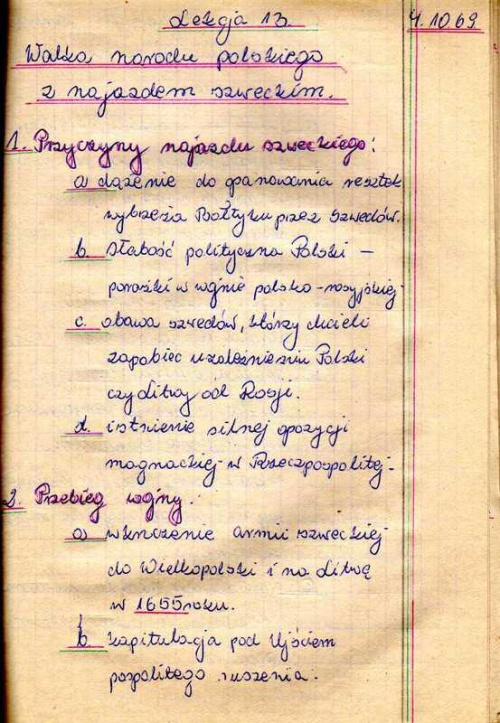 Lekcja 13.
4.10 69
Walka narodu polskiego
z najazdem szweckim.
1. Przyczyny najazdu szweckiego:
a dążenie do opanowania resztek
wybrzeża Bałtyku przez szwedów.
b. słabość polityczna Polski –
porażki w wojnie polsko-rosyjskiej
c. obawa szwedów, którzy chcieli
zapobiec uzależnieniu Polski
czy Litwy od Rosji.
d. istnienie silnej opozycji
magnackiej w Rzeczpospolitej.
2. Przebieg wojny.
a) wkroczenie armii szweckiej
do Wielkopolski i na Litwę
w 1655 roku.
b kapitulacja pod Ujściem
pospolitego ruszenia.